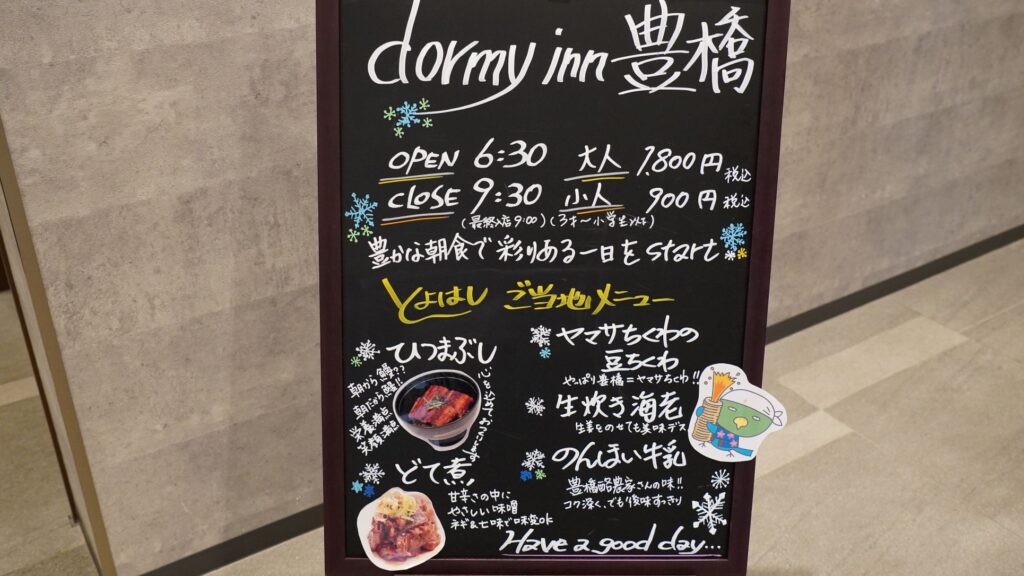 dormy inn 豊橋
OPEN 6:30 大人 1,800円 税込
CLOSE 9:30 小人 900円 税込
(最終入店9:00) (3才〜小学生以下)
豊かな朝食で彩りある一日をstart
とよはし ご当地メニュー
ひつまぶし
朝から鰻??
朝だから鰻!!
栄養満点
笑顔満点
どて煮
甘辛さの中に
やさしい味噌
ネギ&七味で味変ok
ヤマサちくわの
豆ちくわ
やっぱり豊橋=ヤマサちくわ!!
生炊き海老
生姜をのせても美味デス
のんほい牛乳
豊橋酪農家さんの味!!
コク深く、でも後味すっきり
Have a good day...